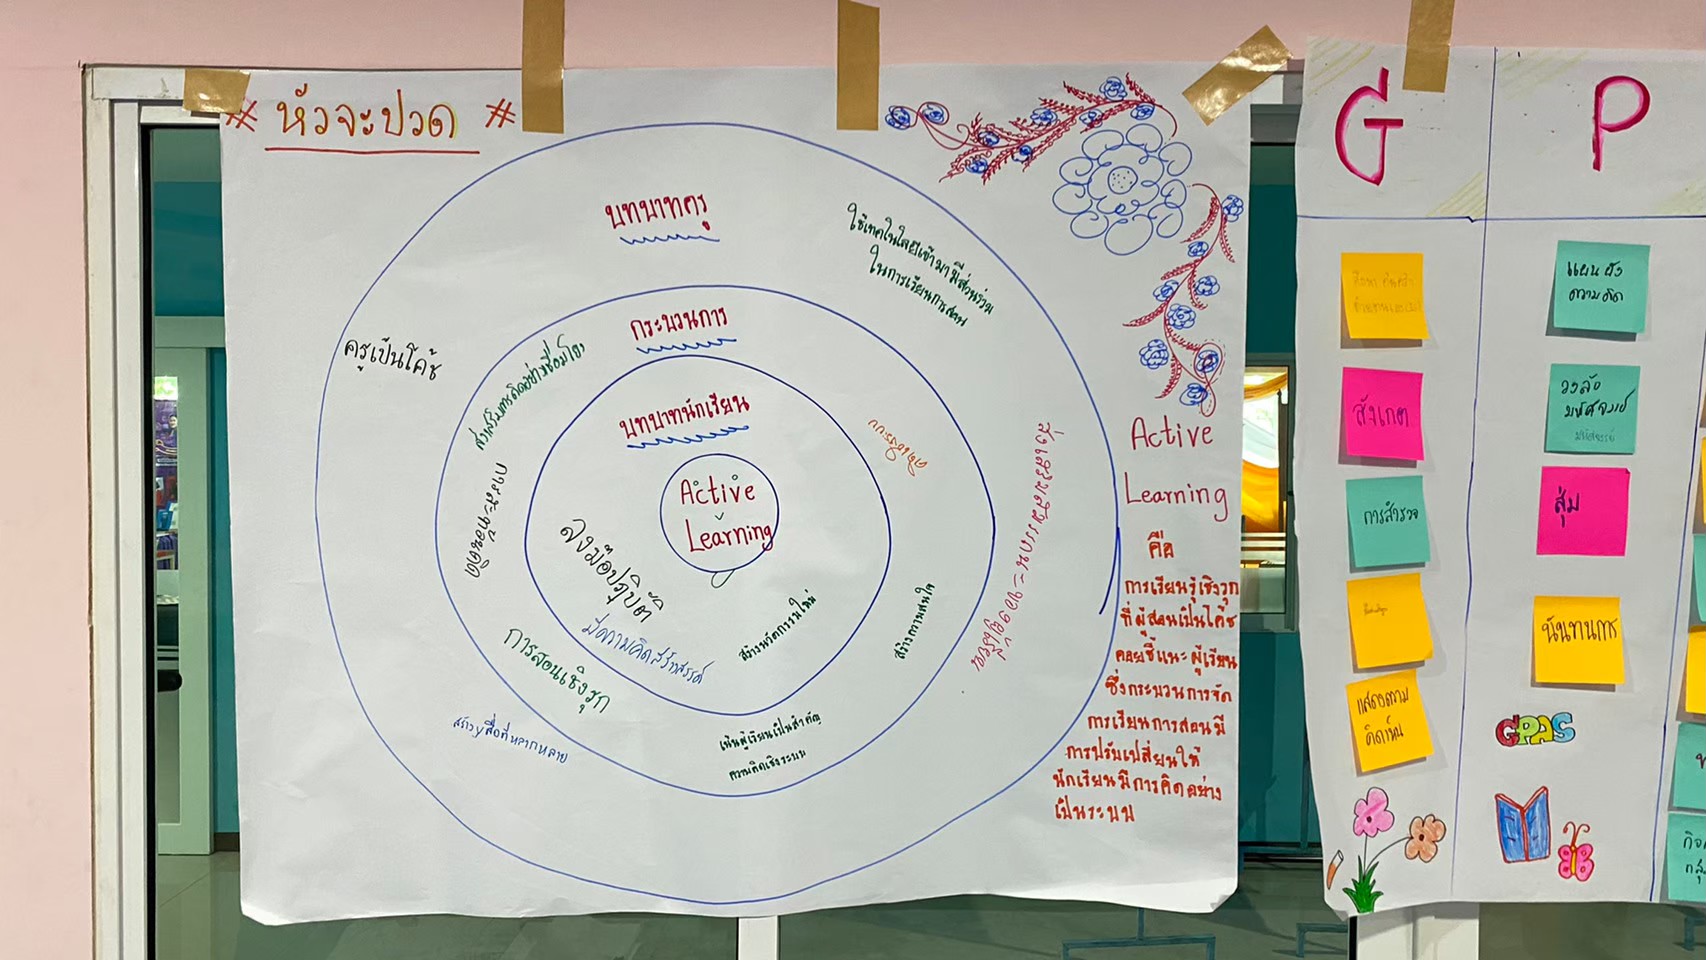 # หัวจะปวด #
บทบาทครู
ใช้เทคโนโลยีเข้ามามีส่วนร่วม
ในการเรียนการสอน
ครูเป็นโค้ช
ส่งเสริมสมรรถนะของผู้เรียน
สร้างสื่อที่หลากหลาย
กระบวนการ
ส่งเสริมการคิดอย่างเชื่อมโยง
การสะท้อนคิด
การสอนเชิงรุก
สร้างความสนใจ
เน้นผู้เรียนเป็นสำคัญ
ความคิดเชิงระบบ
บทบาทนักเรียน
ลงมือปฏิบัติ
มีความคิดสร้างสรรค์
สร้างนวัตกรรมใหม่
Active
Learning
Active
Learning
คือ
การเรียนรู้เชิงรุก
ที่ผู้สอนเป็นโค้ช
คอยชี้แนะผู้เรียน
ซึ่งกระบวนการจัด
การเรียนการสอนมี
การปรับเปลี่ยนให้
นักเรียนมีการคิดอย่าง
เป็นระบบ
G
สังเกต
การสำรวจ
แสดงความ
คิดเห็น
P
แผนผัง
ความคิด
วงล้อ
มหัศจรรย์
มหัศจรรย์
สุ่ม
นันทนการ
GPAS